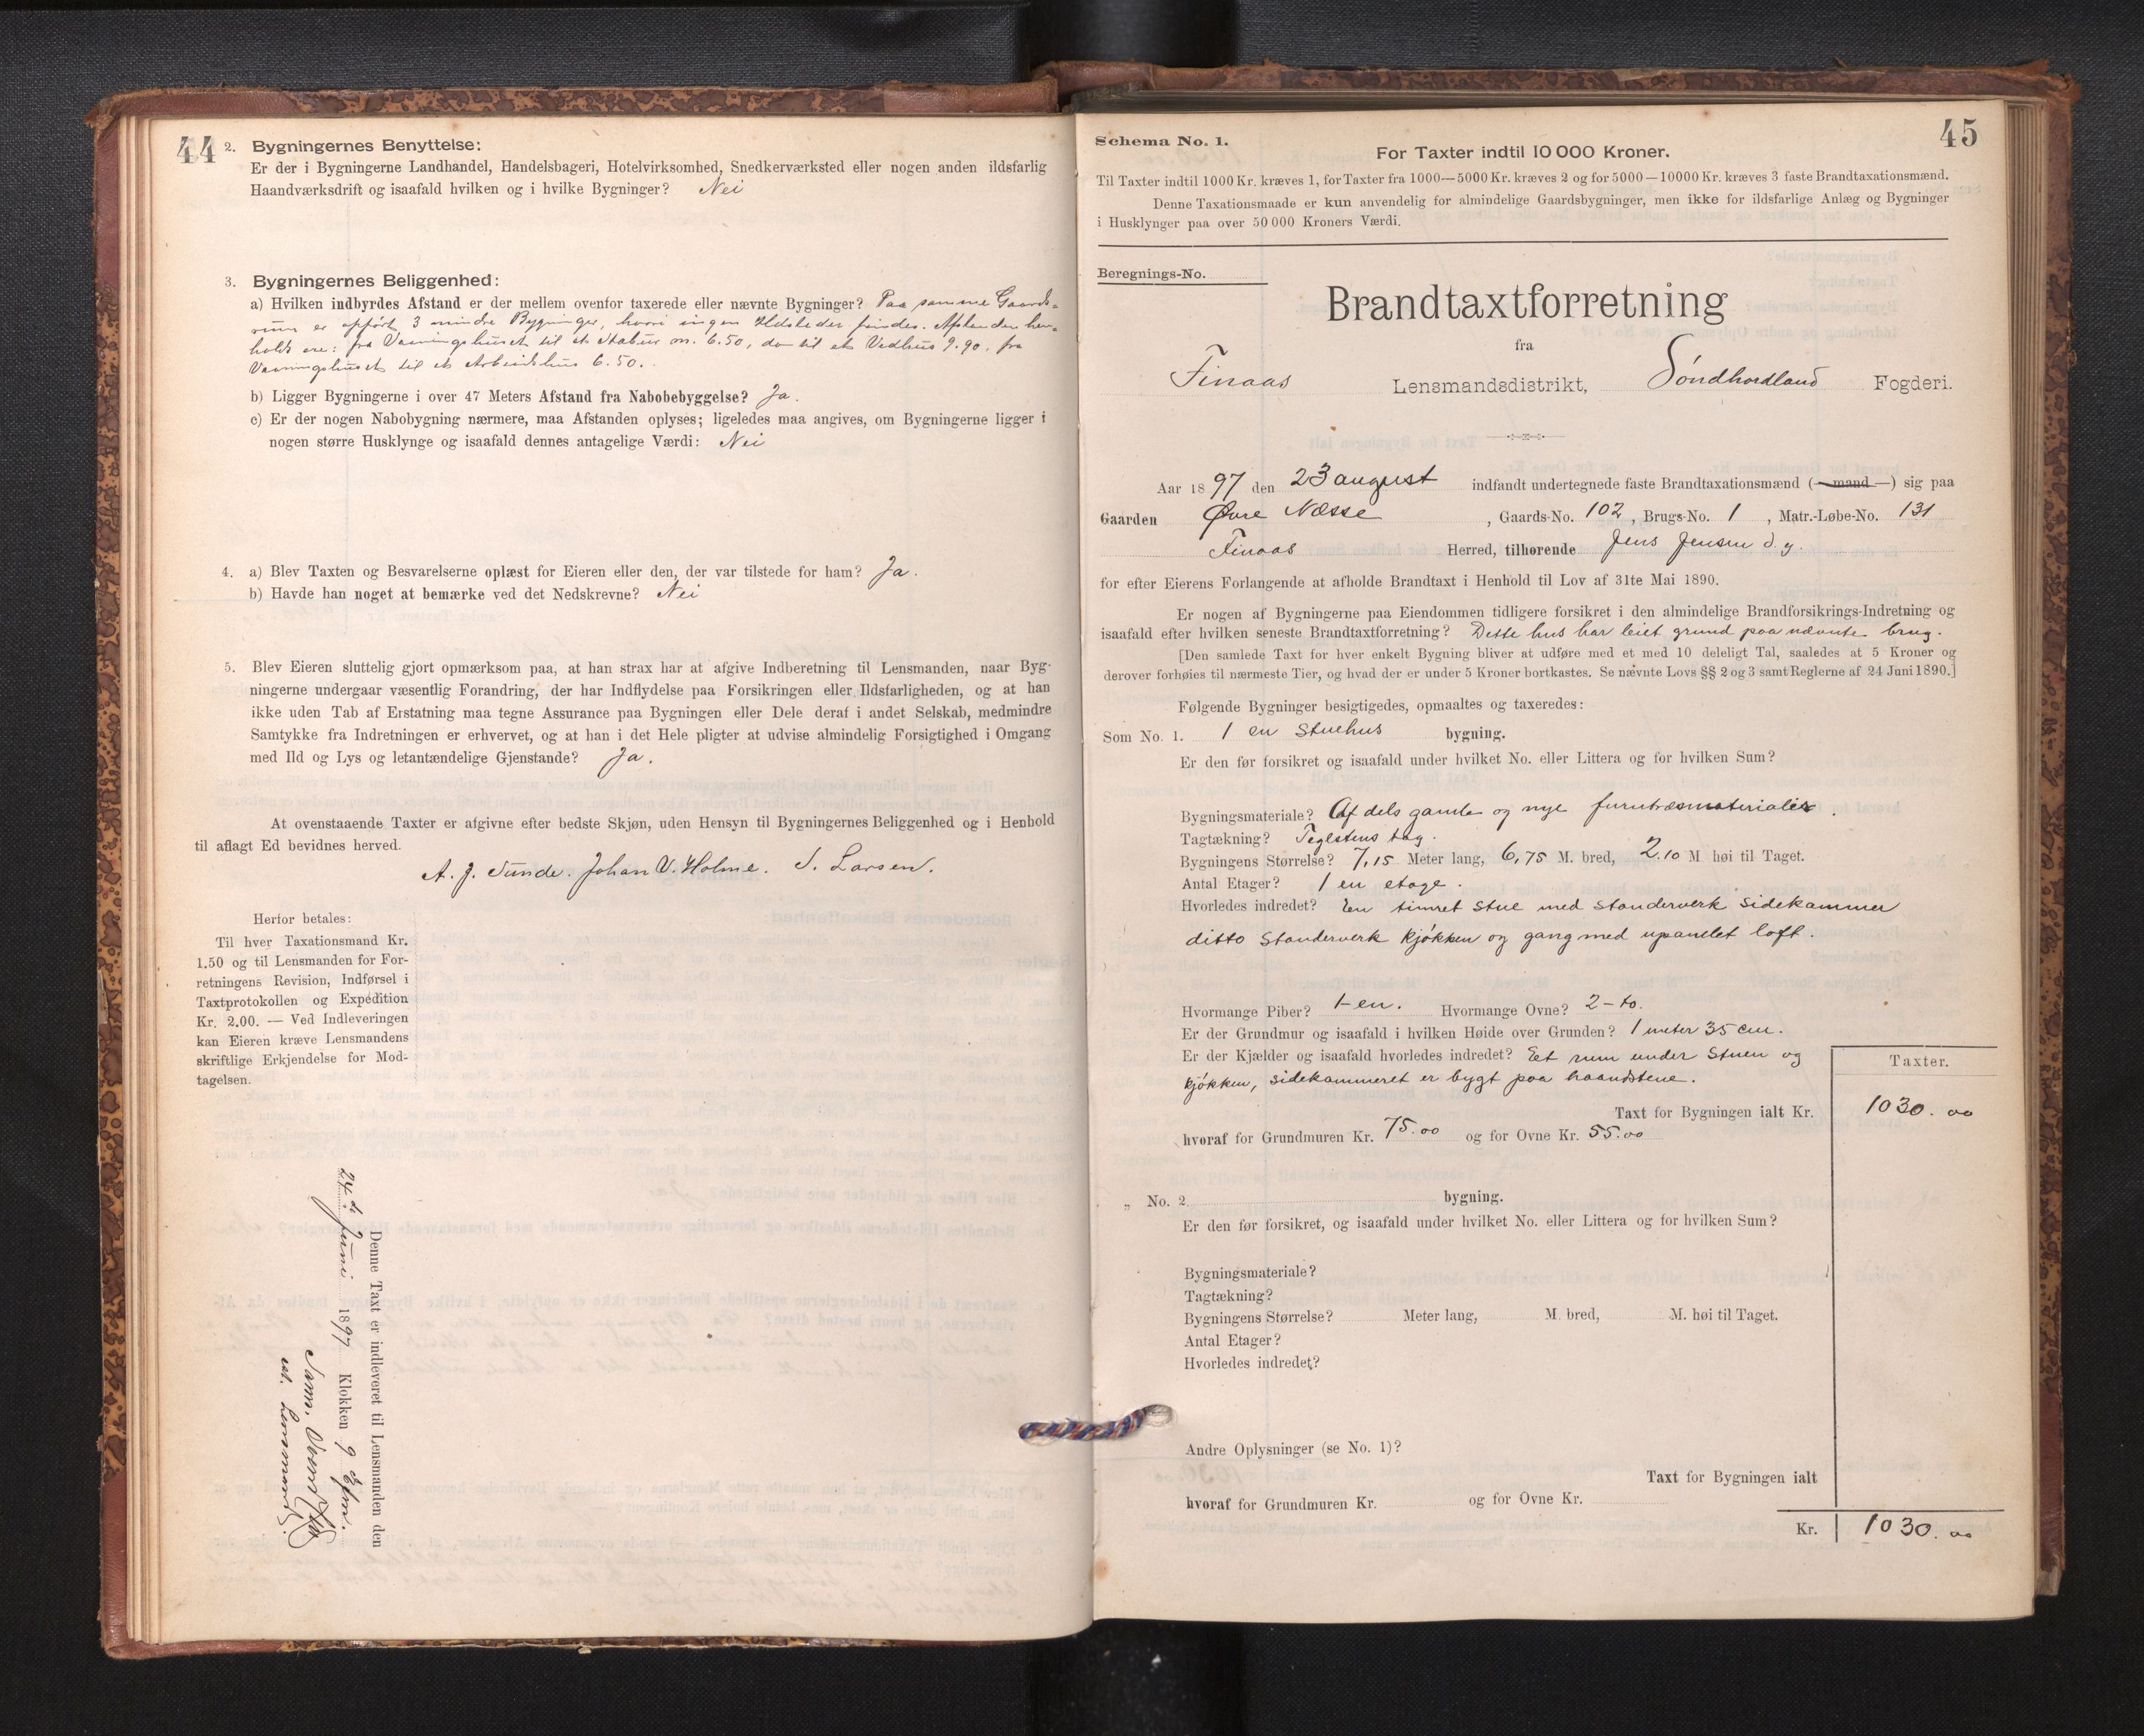 44
2. Bygningernes Benyttelse:
Er der i Bygningerne Landhandel, Handelsbageri, Hotelvirksomhed, Snedkerværksted eller nogen anden ildsfarlig
Haandværksdrift og isaafald hvilken og i hvilke Bygninger? Nei
3. Bygningernes Beliggenhed:
a) Hvilken indbyrdes Afstand er der mellem ovenfor taxerede eller nævnte Bygninger? Paa samme Gaards-
rum er opført 3 mindre Bygninger, hvori ingen Ildsteder findes. Afstanden hen-
holdv ere: fra Vaaningshuset til et Stabur m. 6.50, do til et Vedhus 9.90. fra
Vaaningshuset til et Arbeidshus 6.50.
b) Ligger Bygningerne i over 47 Meters Afstand fra Nabobebyggelse? Ja.
c) Er der nogen Nabobygning nærmere, maa Afstanden oplyses; ligeledes maa angives, om Bygningerne ligger i
nogen større Husklynge og isaafald dennes antagelige Værdi: Nei
4. a) Blev Taxten og Besvarelserne oplæst for Eieren eller den, der var tilstede for ham? Ja.
b) Havde han noget at bemærke ved det Nedskrevne? Nei
5. Blev Eieren sluttelig gjort opmærksom paa, at han strax har at afgive Indberetning til Lensmanden, naar Byg-
ningerne undergaar væsentlig Forandring, der har Indflydelse paa Forsikringen eller Ildsfarligheden, og at han
ikke uden Tab af Erstatning maa tegne Assurance paa Bygningen eller Dele deraf i andet Selskab, medmindre
Samtykke fra Indretningen er erhvervet, og at han i det Hele pligter at udvise almindelig Forsigtighed i Omgang
med Ild og Lys og letantændelige Gjenstande? Ja.
At ovenstaaende Taxter er afgivne efter bedste Skjøn, uden Hensyn til Bygningernes Beliggenhed og i Henhold
til aflagt Ed bevidnes herved.
A. J. Tunde. Johan V. Holme. S. Larsen.
Herfor betales:
Til hver Taxationsmand Kr.
1.50 og til Lensmanden for For-
retningens Revision, Indførsel i
Taxtprotokollen og Expedition
Kr. 2.00. — Ved Indleveringen
kan Eieren kræve Lensmandens
skriftlige Erkjendelse for Mod-
tagelsen.
Denne Taxt er indleveret til Lensmanden den
24de Juni 1897 Klokken 9 Efm.
Lensmand.
45
Schema No. 1.
For Taxter indtil 10 000 Kroner.
Til Taxter indtil 1000 Kr. kræves 1, for Taxter fra 1000—5000 Kr. kræves 2 og for 5000—10000 Kr. kræves 3 faste Brandtaxationsmænd.
Denne Taxationsmaade er kun anvendelig for almindelige Gaardsbygninger, men ikke for ildsfarlige Anlæg og Bygninger
i Husklynger paa over 50 000 Kroners Værdi.
Beregnings-No.
Brandtaxtforretning
fra
Finaas Lensmandsdistrikt, Søndhordland Fogderi.
Aar 1897 den 23 august indfandt undertegnede faste Brandtaxationsmænd (—mand—) sig paa
Gaarden Øvre Næsse, Gaards-No. 102, Brugs-No. 1, Matr.-Løbe-No. 131
Finaas Herred, tilhørende Jens Jensen d. y.
for efter Eierens Forlangende at afholde Brandtaxt i Henhold til Lov af 31te Mai 1890.
Er nogen af Bygningerne paa Eiendommen tidligere forsikret i den almindelige Brandforsikrings-Indretning og
isaafald efter hvilken seneste Brandtaxtforretning? Dette hus har leiet grund paa nævnte brug.
[Den samlede Taxt for hver enkelt Bygning bliver at udføre med et med 10 deleligt Tal, saaledes at 5 Kroner og
derover forhøies til nærmeste Tier, og hvad der er under 5 Kroner bortkastes. Se nævnte Lovs §§ 2 og 3 samt Reglerne af 24 Juni 1890.]
Følgende Bygninger besigtigedes, opmaaltes og taxeredes:
Som No. 1. 1 en Stuehus bygning.
Er den før forsikret og isaafald under hvilket No. eller Littera og for hvilken Sum?
Bygningsmateriale? Af dels gamle og nye furutræsmaterialer.
Tagtækning? Teglstens tag.
Bygningens Størrelse? 7,15 Meter lang, 6,75 M. bred, 2.10 M høi til Taget.
Antal Etager? 1 en etage.
Hvorledes indredet? En timret stue med standerverk sidekammer
ditto standerverk kjøkken og gang med upanelet loft.
Hvormange Piber? 1-en. Hvormange Ovne? 2-to.
Er der Grundmur og isaafald i hvilken Høide over Grunden? 1 meter 35 cm.
Er der Kjælder og isaafald hvorledes indredet? Et rum under stuen og
kjøkken, sidekammeret er bygt paa haandstene.
Taxter.
Taxt for Bygningen ialt Kr. 1030.00
hvoraf for Grundmuren Kr. 75.00 og for Ovne Kr. 55.00
„ No. 2 bygning.
Er den før forsikret, og isaafald under hvilket No. eller Littera og for hvilken Sum?
Bygningsmateriale?
Tagtækning?
Bygningens Størrelse? Meter lang, M. bred, M. høi til Taget.
Antal Etager?
Hvorledes indredet?
Andre Oplysninger (se No. 1)?
Taxt for Bygningen ialt
hvoraf for Grundmuren Kr. og for Ovne Kr.
Kr. 1030.00